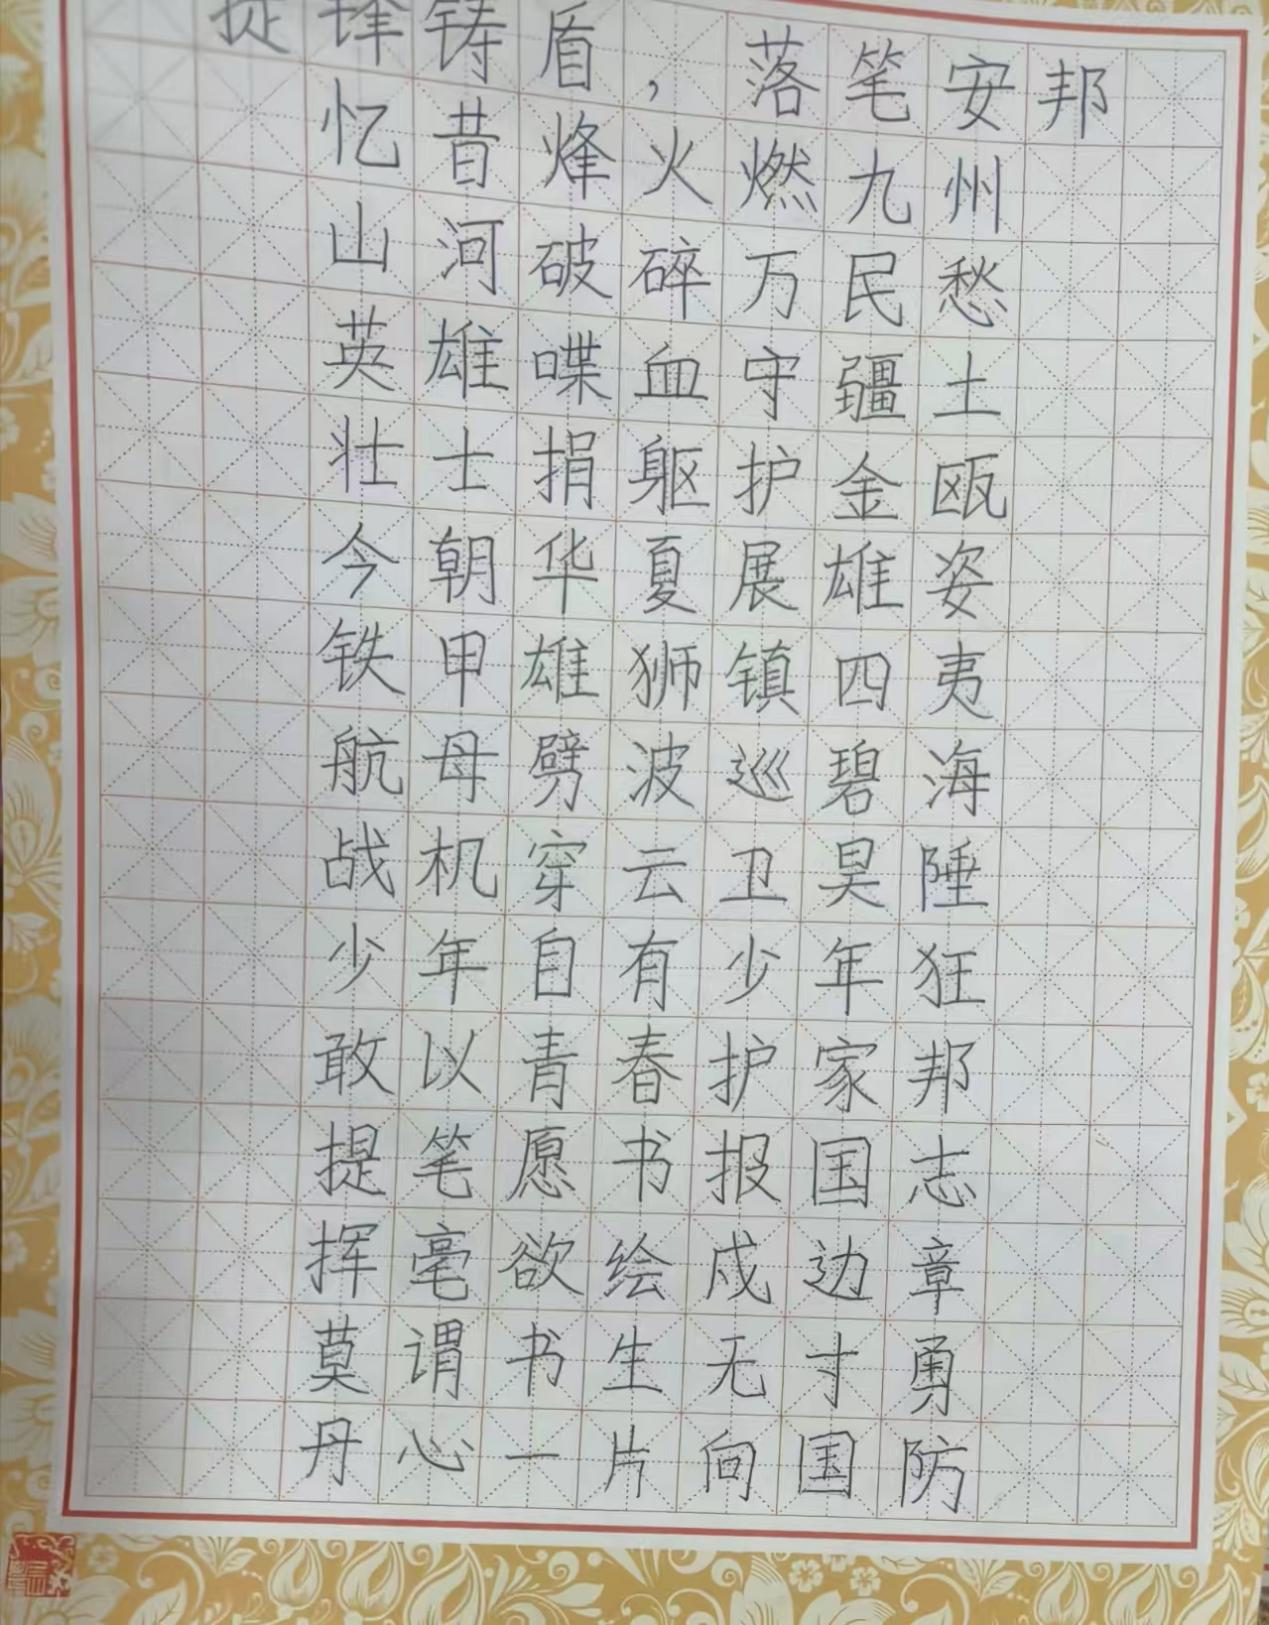 提锋铸盾，落笔安邦
忆昔烽火燃九州
山河破碎万民愁
英雄喋血守疆土
壮士捐躯护金瓯
今朝华夏展雄姿
铁甲雄狮镇四夷
航母劈波巡碧海
战机穿云卫昊陲
少年自有少年狂
敢以青春护家邦
提笔愿书报国志
挥毫欲绘戍边章
莫谓书生无寸勇
丹心一片向国防